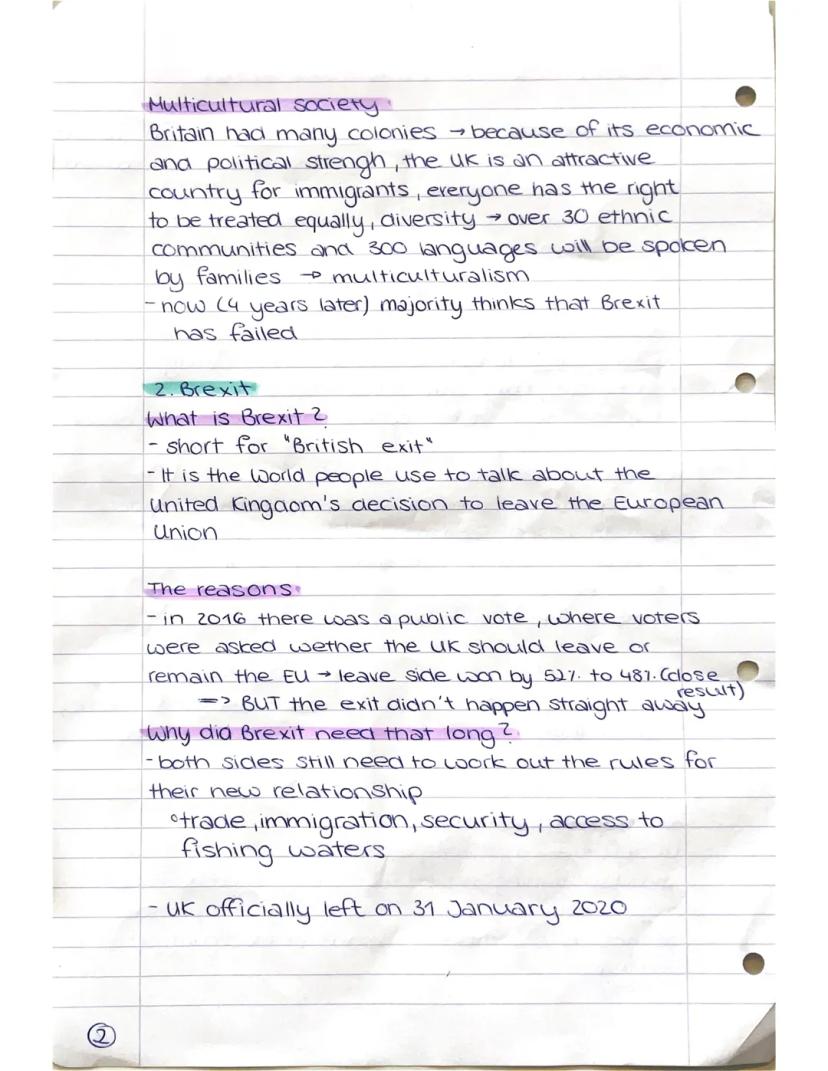 Multicultural society
Britain had many colonies → because of its economic
and political strengh, the UK is an attractive
country for immigrants, everyone has the right
to be treated equally, diversity → over 30 ethnic
communities and 300 languages will be spoken
by families → multiculturalism
- now (4 years later) majority thinks that Brexit
has failed
2. Brexit
What is Brexit?
- short for "British exit"
- It is the World people use to talk about the
United Kingdom's decision to leave the European
Union
The reasons
- in 2016 there was a public vote, where voters
were asked wether the UK should leave or
remain the EU → leave side won by 52% to 48% (close
result)
=> BUT the exit didn't happen straight away
Why did Brexit need that long?
- both sides still need to work out the rules for
their new relationship
° trade, immigration, security, access to
fishing waters
- UK officially left on 31 January 2020
2